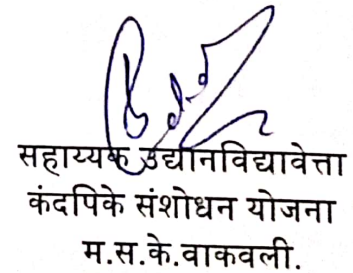 सहाय्यक उद्यानविद्यावेत्ता
कंदपिके संशोधन योजना
म.स.के.वाकवली.